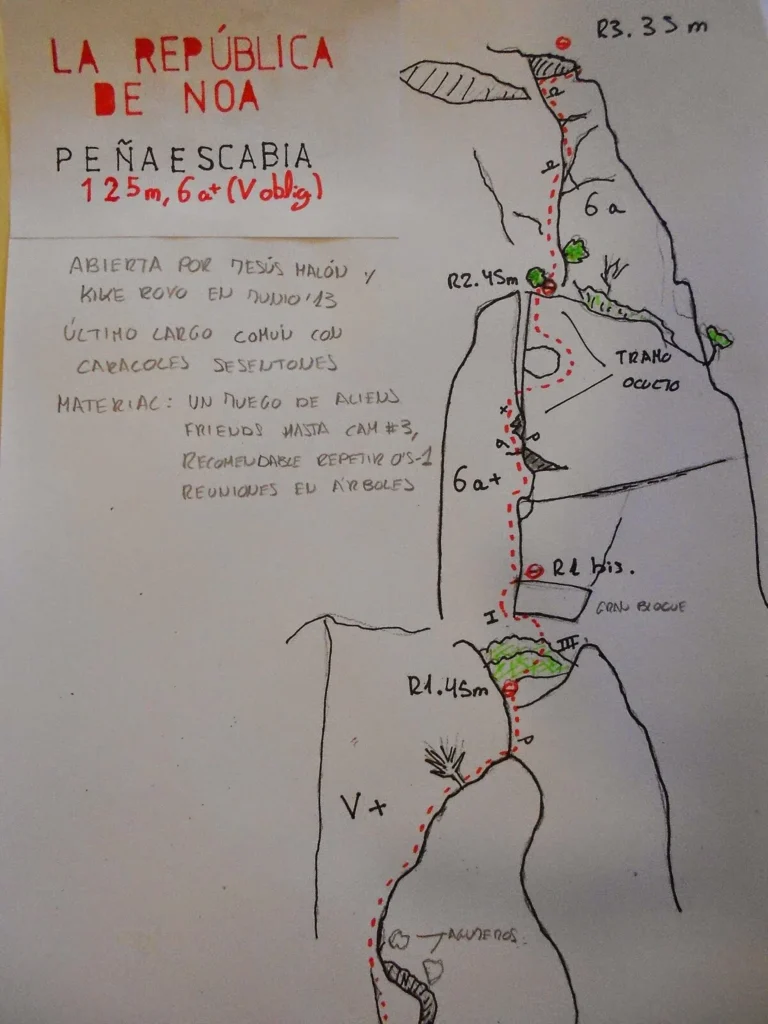 LA REPÚBLICA
DE NOA
PEÑAESCABIA
125m, 6a+ (V oblig)
ABIERTA POR JESÚS MALÓN Y
KIKE ROYO EN JUNIO'13
ÚLTIMO LARGO COMÚN CON
CARACOLES SESENTONES
MATERIAL: UN JUEGO DE ALIENS
FRIENDS HASTA CAM #3,
RECOMENDABLE REPETIR 0'5-1
REUNIONES EN ÁRBOLES
R3. 35 m
6a
R2. 45m
TRAMO
OCULTO
6a+
R1 bis.
GRAN BLOQUE
I
III
R1. 45m
V+
AGUJEROS